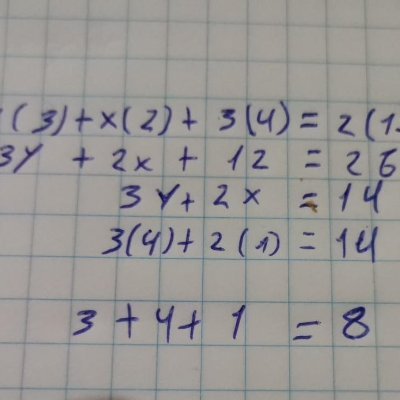 (3)+x(2)+ 3(4) = 2(1
3y + 2x + 12 = 26
3y+ 2x = 14
3(4)+ 2(1) = 14
3 + 4 + 1 = 8